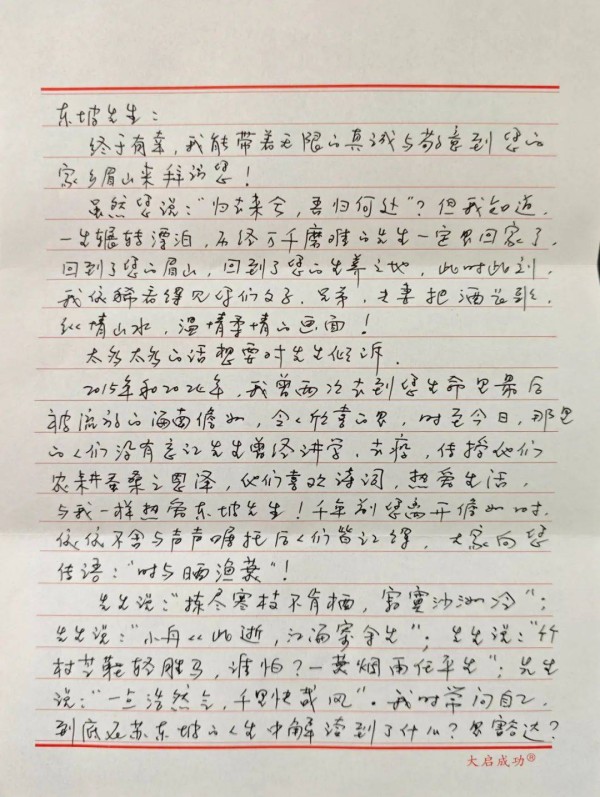 东坡先生：
终于有幸，我能带着无限的真诚与敬意到您的
家乡眉山来拜谒您！
虽然您说："归去来兮，吾归何处"？但我知道，
一生辗转漂泊，历经万千磨难的先生一定是回家了，
回到了您的眉山，回到了您的生养之地，此时此刻，
我依稀看得见你们父子、兄弟、夫妻把酒当歌，
纵情山水，温情柔情的画面！
太多太多的话想要对先生倾诉。
2015年和2024年，我曾两次去到您生命里最后
被流放的海南儋州，令人欣喜的是，时至今日，那里
的人们没有忘记先生曾经讲学、去瘴，传授他们
农耕蚕桑之恩泽，他们喜欢诗词，热爱生活，
与我一样热爱东坡先生！千年前您离开儋州时，
依依不舍与声声嘱托后人们皆记得，大家向您
传语："时与晒渔蓑"！
先生说："拣尽寒枝不肯栖，寂寞沙洲冷"；
先生说："小舟从此逝，江海寄余生"；先生说："竹
杖芒鞋轻胜马，谁怕？一蓑烟雨任平生"；先生
说："一点浩然气，千里快哉风"。我时常问自己，
到底在苏东坡的人生中解读到了什么？是豁达？
大启成功®